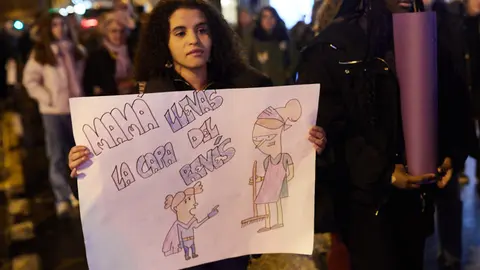 MAMÁ LLEVAS
LA CAPA DEL
REVÉS